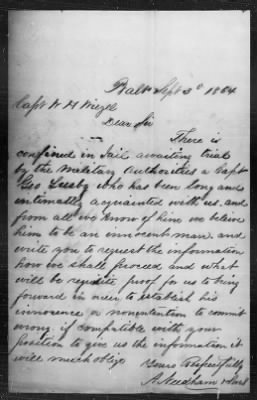 Balt Sept 3d 1864
Capt W H Wiegel
Dear Sir
There is
confined in Jail awaiting trial
by the Military Authorities a Capt
Geo Lusby who has been long and
intimally acquainted with us. and
from all we know of him we beleive
him to be an innocent man. and
write you to request the information
how we shall proceed and what
will be requsite proof for us to bring
forward in order to establish his
innocence or nonentention to commit
wrong if compatible with your
position to give us the information it
will much oblige
Yours Respectfully
A Needham & Son